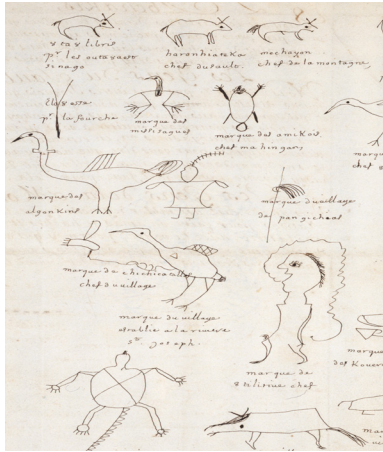 8tax libris
pr les outa8ast
sinago
haronhiateka
chef du sault.
mechayon
chef de la montagne,
pr la fourche
marque des
missisagues
marque des amikois,
chef mahingan,
marqu
chef
marque des
algonkins
marque du village
de pangicheas
marque de chichicatalle
chef du village
marque du village
establie a la riviere
st joseph.
marque de
8tilirine chef
mar
des Kouera
mar
vi